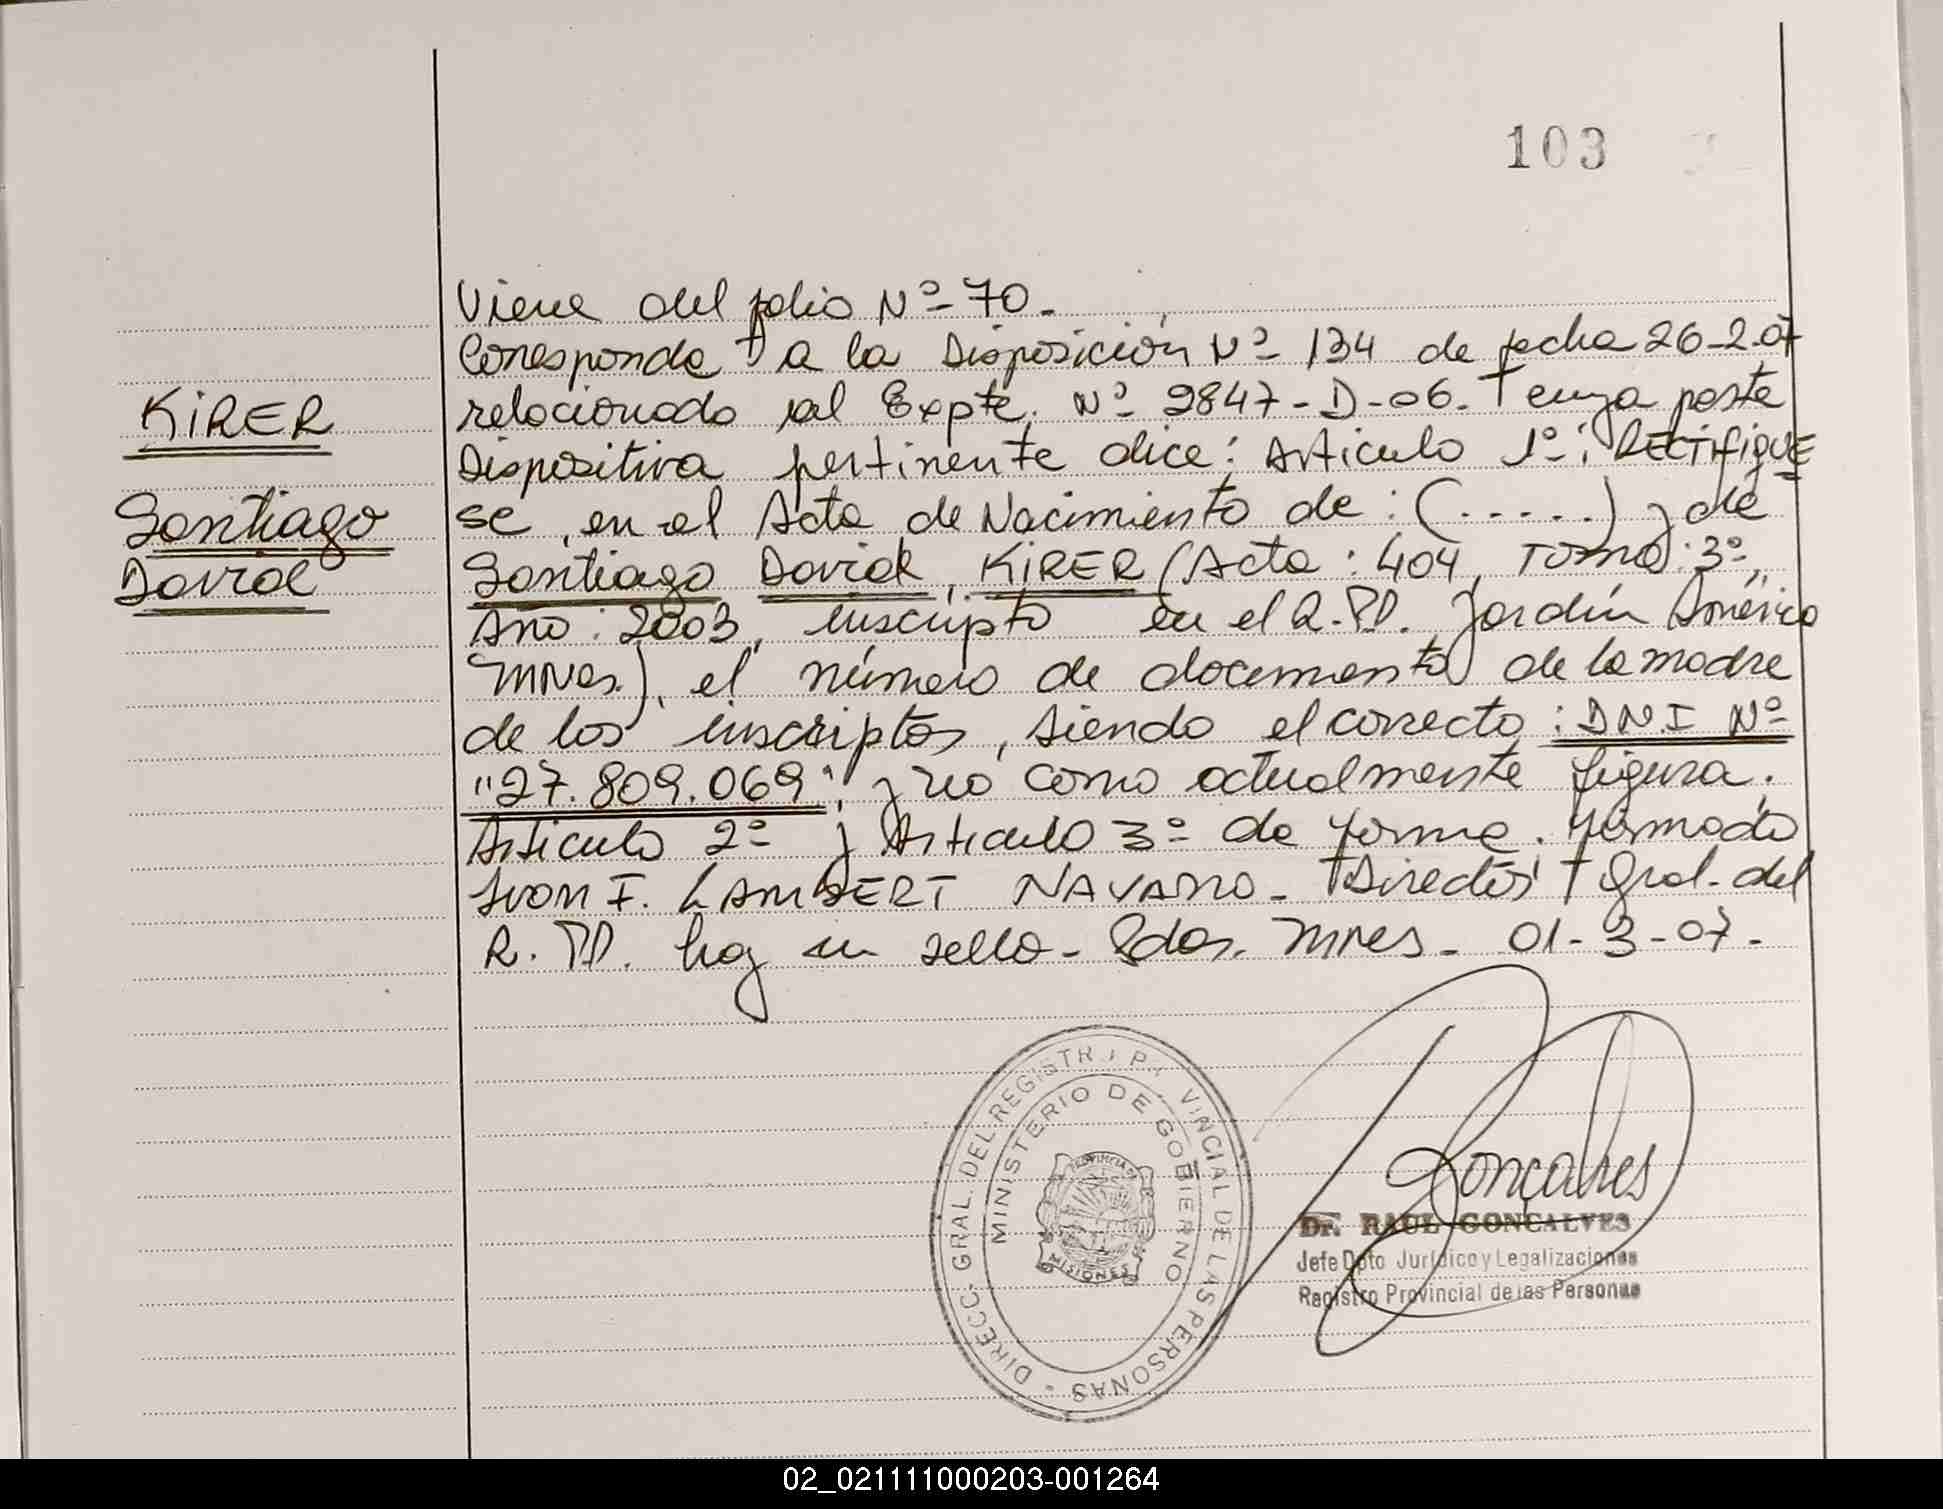 103
Viene del folio Nº 70.
Corresponde a la Disposición Nº 134 de fecha 26-2-07
relacionado al Expte. Nº 9847-D-06. cuya parte
Dispositiva pertinente dice: Artículo 1º: RECTIFIQUE
se, en el Acta de Nacimiento de: (.....) y de
Santiago David, KIRER (Acta: 404, Tomo: 3º,
Año: 2003, inscripto en el R.PP. Jardín América
MNes.), el número de documento de la madre
de los inscriptos, siendo el correcto: DNI Nº
"27.809.069"; y no como actualmente figura.
Artículo 2º y Artículo 3º de forma. Firmado
Ivon F. LAMBERT NAVARRO- Director Gral. del
R. PP. hay un sello- Pdas. Mnes- 01-3-07-
KIRER
Santiago
David
DIRECC. GRAL. DEL REGISTR PR VINCIAL DE LAS PERSONAS -
MINISTERIO DE GOBIERNO
PROVINCIA DE
MISIONES
Gonçalves
Dr. RAUL GONCALVES
Jefe Dpto Jurídico y Legalizaciones
Registro Provincial de las Personas
02_021111000203-001264